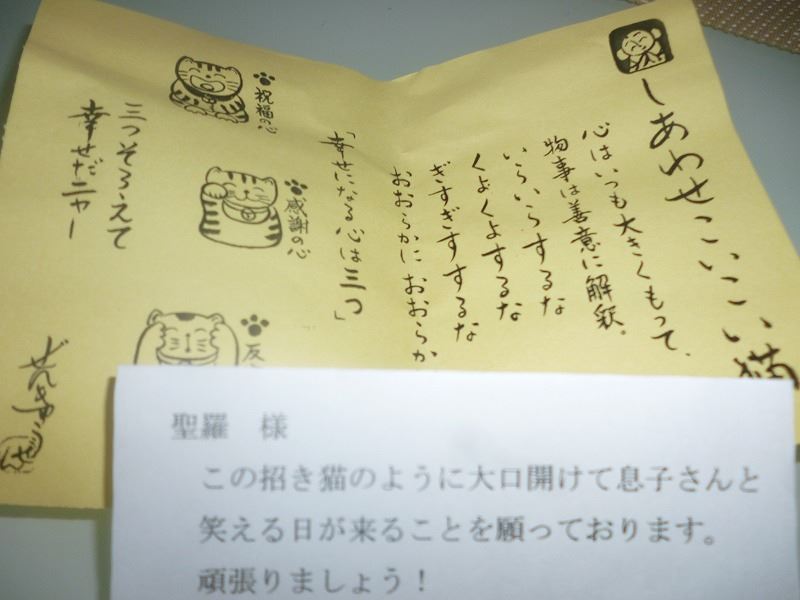 しあわせこいこい猫
心はいつも大きくもって、
物事は善意に解釈。
いらいらするな
くよくよするな
ぎすぎすするな
おおらかに おおらか
「幸せになる心は三つ」
祝福の心
感謝の心
反
三つそろえて
幸せだニャー
聖羅 様
この招き猫のように大口開けて息子さんと
笑える日が来ることを願っております。
頑張りましょう！